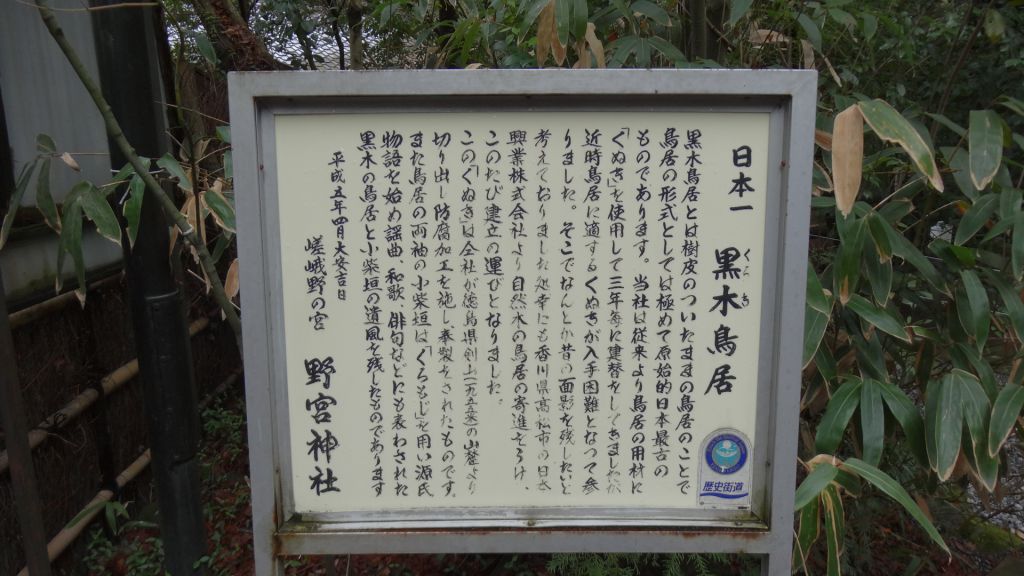 日本一 黒木鳥居
くろき
黒木鳥居とは樹皮のついたままの鳥居のことで
鳥居の形式としては極めて原始的日本最古の
ものであります。当社は従来より鳥居の用材に
「くぬぎ」を使用して三年毎に建替をしてきましたが
近時鳥居に適するくぬぎが入手困難となって参
りました。そこでなんとか昔の面影を残したいと
考えておりました処幸にも香川県高松市の日本
興業株式会社より自然木の鳥居の寄進をうけ、
このたび建立の運びとなりました。
この「くぬぎ」は全社が徳島県剣山(一九五五米)の山麓より
切り出し防腐加工を施し奉製をされたものです。
また鳥居の両袖の小柴垣は「くろもじ」を用い源氏
物語を始め謡曲、和歌、俳句などにも表わされた
黒木の鳥居と小柴垣の遺風を残したものであります
平成五年四月大安吉日
嵯峨野の宮 野宮神社
歴史街道